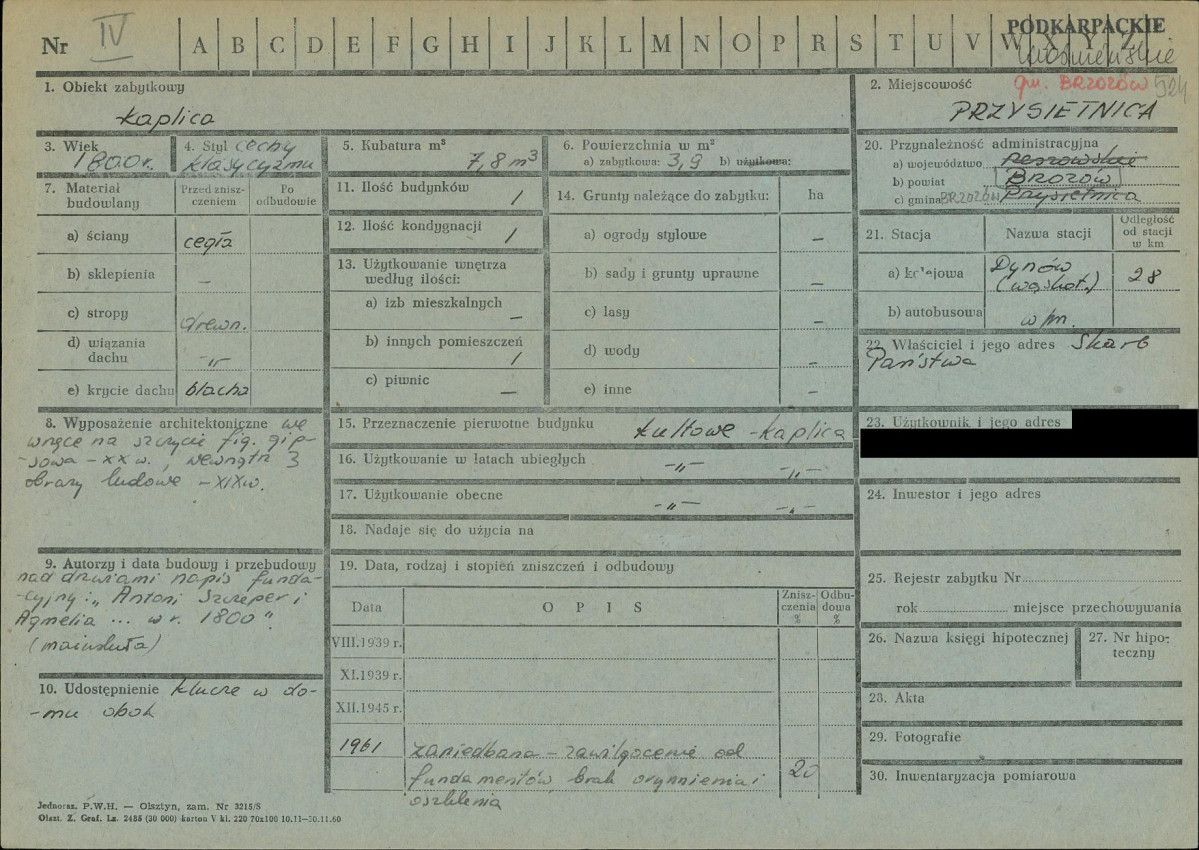 Nr IV A B C D E F G H I J K L M N O P R S T U V W X Y Z
PODKARPACKIE
gm. BRZOZÓW 524
1. Obiekt zabytkowy
kaplica
2. Miejscowość
PRZYSIETNICA
3. Wiek
1800 r.
4. Styl cechy
klasycyzmu
5. Kubatura m³
7,8 m³
6. Powierzchnia w m²
a) zabytkowa: 3,9 b) użytkowa:
20. Przynależność administracyjna
a) województwo rzeszowskie
b) powiat BRZOZÓW
c) gmina BRZOZÓW Przysietnica
7. Materiał budowlany
Przed zniszczeniem
Po odbudowie
a) ściany cegła
b) sklepienia –
c) stropy drewn.
d) wiązania dachu -"-
e) krycie dachu blacha
11. Ilość budynków 1
12. Ilość kondygnacji 1
13. Użytkowanie wnętrza
według ilości:
a) izb mieszkalnych –
b) innych pomieszczeń 1
c) piwnic –
14. Grunty należące do zabytku: ha
a) ogrody stylowe –
b) sady i grunty uprawne –
c) lasy –
d) wody –
e) inne –
21. Stacja
Nazwa stacji
Odległość
od stacji
w km
a) kolejowa Dynów
(wąskot.) 28
b) autobusowa w/m.
22. Właściciel i jego adres Skarb
Państwa
8. Wyposażenie architektoniczne we
wnęce na szczycie fig. gip-
-sowa – XX w., wewnątrz 3
obrazy ludowe – XIX w.
15. Przeznaczenie pierwotne budynku kultowe - kaplica
16. Użytkowanie w latach ubiegłych -"- -"-
17. Użytkowanie obecne -"- -"-
18. Nadaje się do użycia na
23. Użytkownik i jego adres
24. Inwestor i jego adres
9. Autorzy i data budowy i przebudowy
nad drzwiami napis funda-
-cyjny: „Antoni Szczeper i
Agnelia ... w r. 1800"
(majuskuła)
10. Udostępnienie klucze w do-
-mu obok
19. Data, rodzaj i stopień zniszczeń i odbudowy
Data
O P I S
Znisz-
czenia
%
Odbu-
dowa
%
VIII.1939 r.
XI.1939 r.
XII.1945 r.
1961 zaniedbana – zawilgocenie od
fundamentów, brak orynnienia i
oszklenia
20
25. Rejestr zabytku Nr
rok miejsce przechowywania
26. Nazwa księgi hipotecznej
27. Nr hipo-
teczny
28. Akta
29. Fotografie
30. Inwentaryzacja pomiarowa
Jednoraz. P.W.H. — Olsztyn, zam. Nr 3215/S
Olszt. Z. Graf. Lz. 2485 (30 000) karton V kl. 220 70x100 10.11—30.11.60